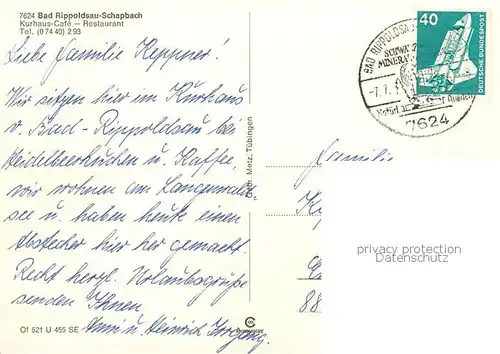 7624 Bad Rippoldsau-Schapbach
Kurhaus-Café – Restaurant
Tel. (07440) 293
Liebe Familie Keppner!
Wir sitzen hier im Kurhaus
v. Bad-Rippoldsau bei
Heidelbeerkuchen u. Kaffee,
wir wohnen am Langenwald
see u. haben heute einen
Abstecher hier her gemacht.
Recht herzl. Urlaubsgrüße
senden Ihnen
Anni u. Heinrich
Of 521 U 455 SE
Gebr. Metz, Tübingen
BAD RIPPOLDSAU
SCHW
MINERA
-7.7.
7624
40
DEUTSCHE BUNDESPOST
Familie
88
privacy protection